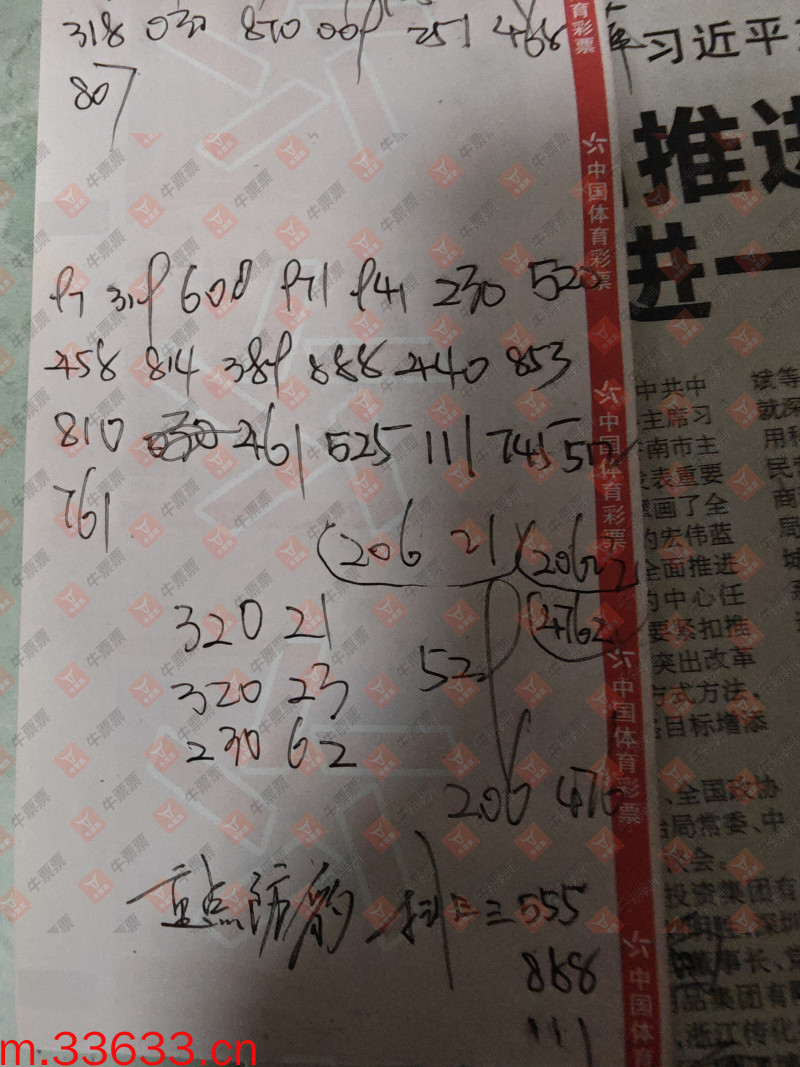 318 030 870 009 251 468
807
97 319 608 971 941 230 520
458 814 389 888 440 853
810 030 461 525 111 745 512
761
(206 21) (206 22)
320 21 52 (4762)
320 23
230 62
206 476
重点防 555
868
111
育彩票
中国体育彩票
中国体育彩票
中国体育彩票
中国体育
习近平
推进
进一
中共中
主席习
南市主
发表重要
擘画了全
的宏伟蓝
全面推进
的中心任
要紧扣推
突出改革
方式方法、
目标增添
、全国政协
治局常委、中
大会。
投资集团有
深圳
董事长、党
用品集团有限
、浙江传化
斌等
就深
用和
民
商
局
城
牛票票
m.33633.cn